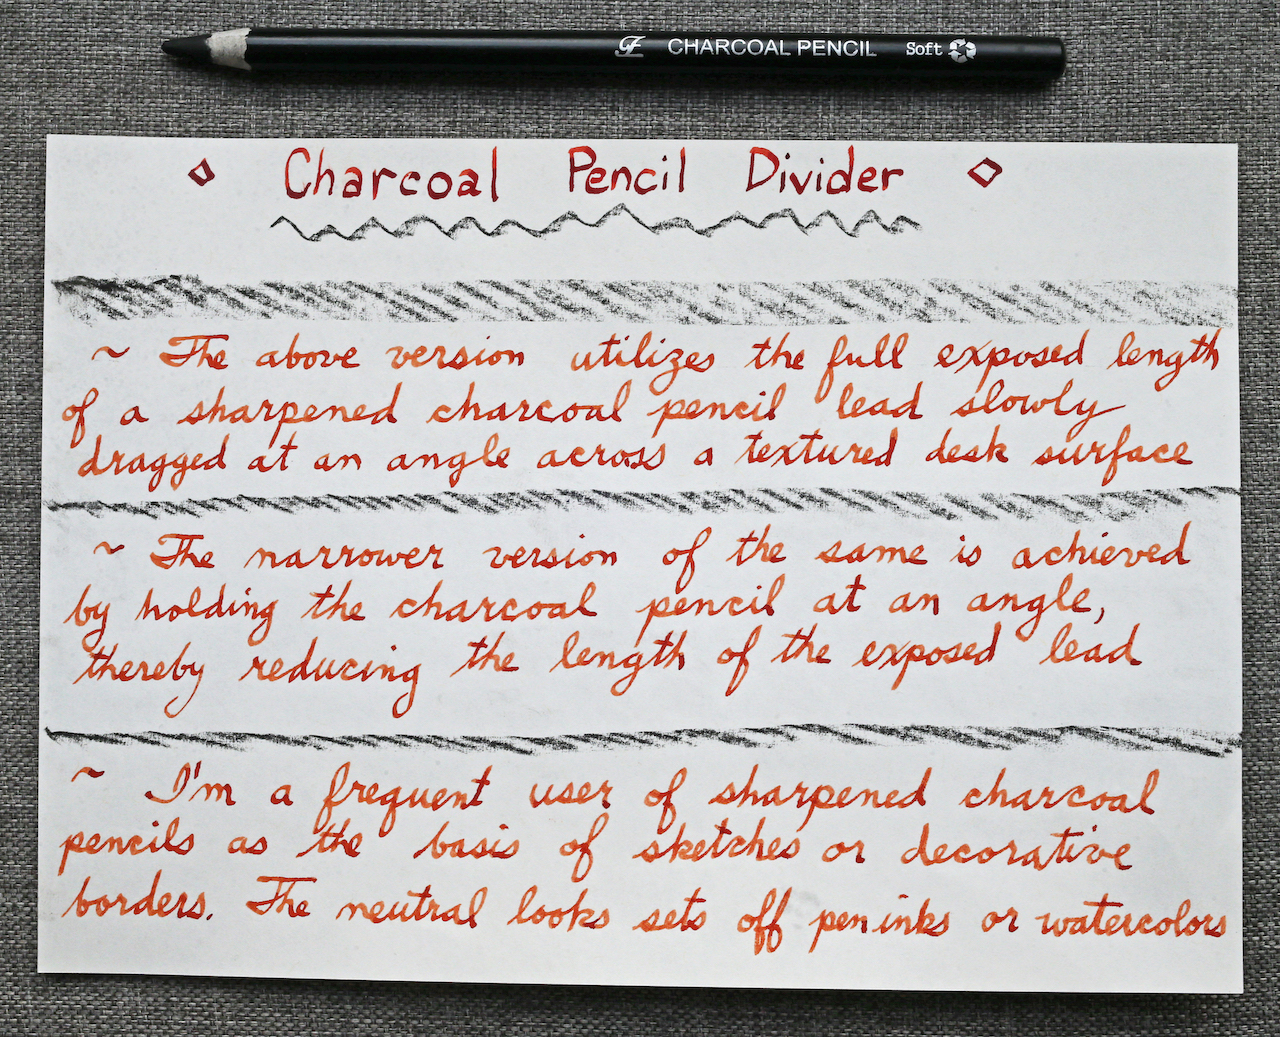 GF CHARCOAL PENCIL Soft
◇ Charcoal Pencil Divider ◇
~ The above version utilizes the full exposed length
of a sharpened charcoal pencil lead slowly
dragged at an angle across a textured desk surface
~ The narrower version of the same is achieved
by holding the charcoal pencil at an angle,
thereby reducing the length of the exposed lead
~ I'm a frequent user of sharpened charcoal
pencils as the basis of sketches or decorative
borders. The neutral looks sets off pen inks or watercolors